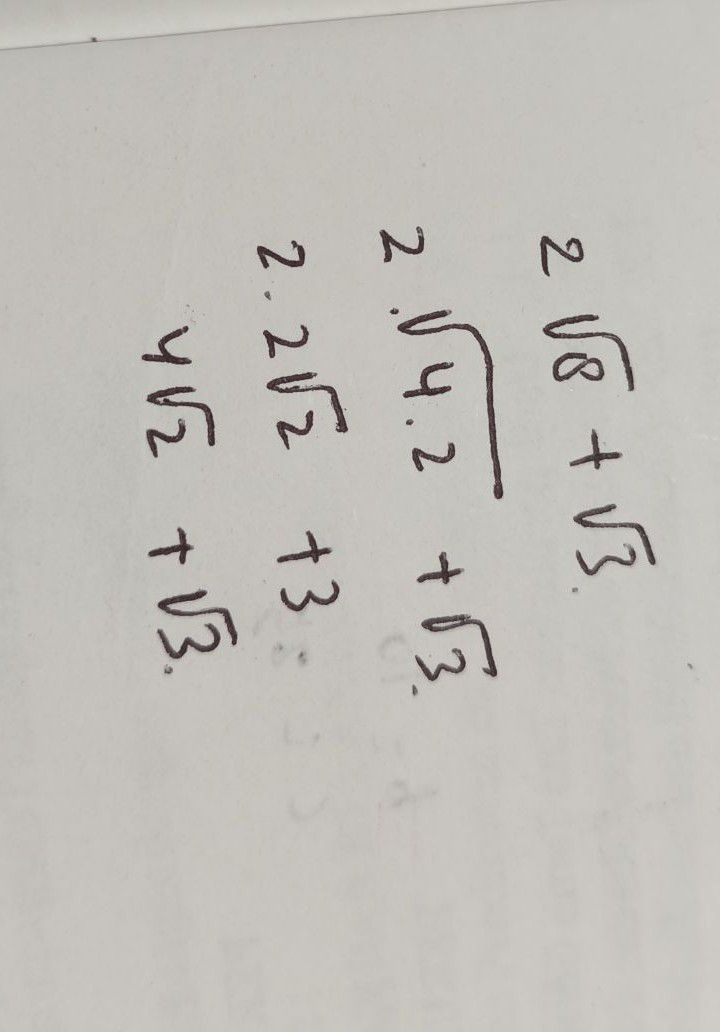 2√8 + √3.
2.√4.2 + √3.
2.2√2 + 3
4√2 + √3.